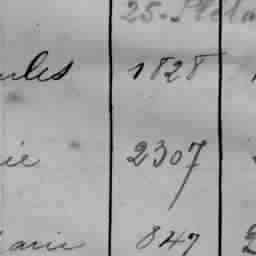 25.
ules 1828
ie 2307
arie 847